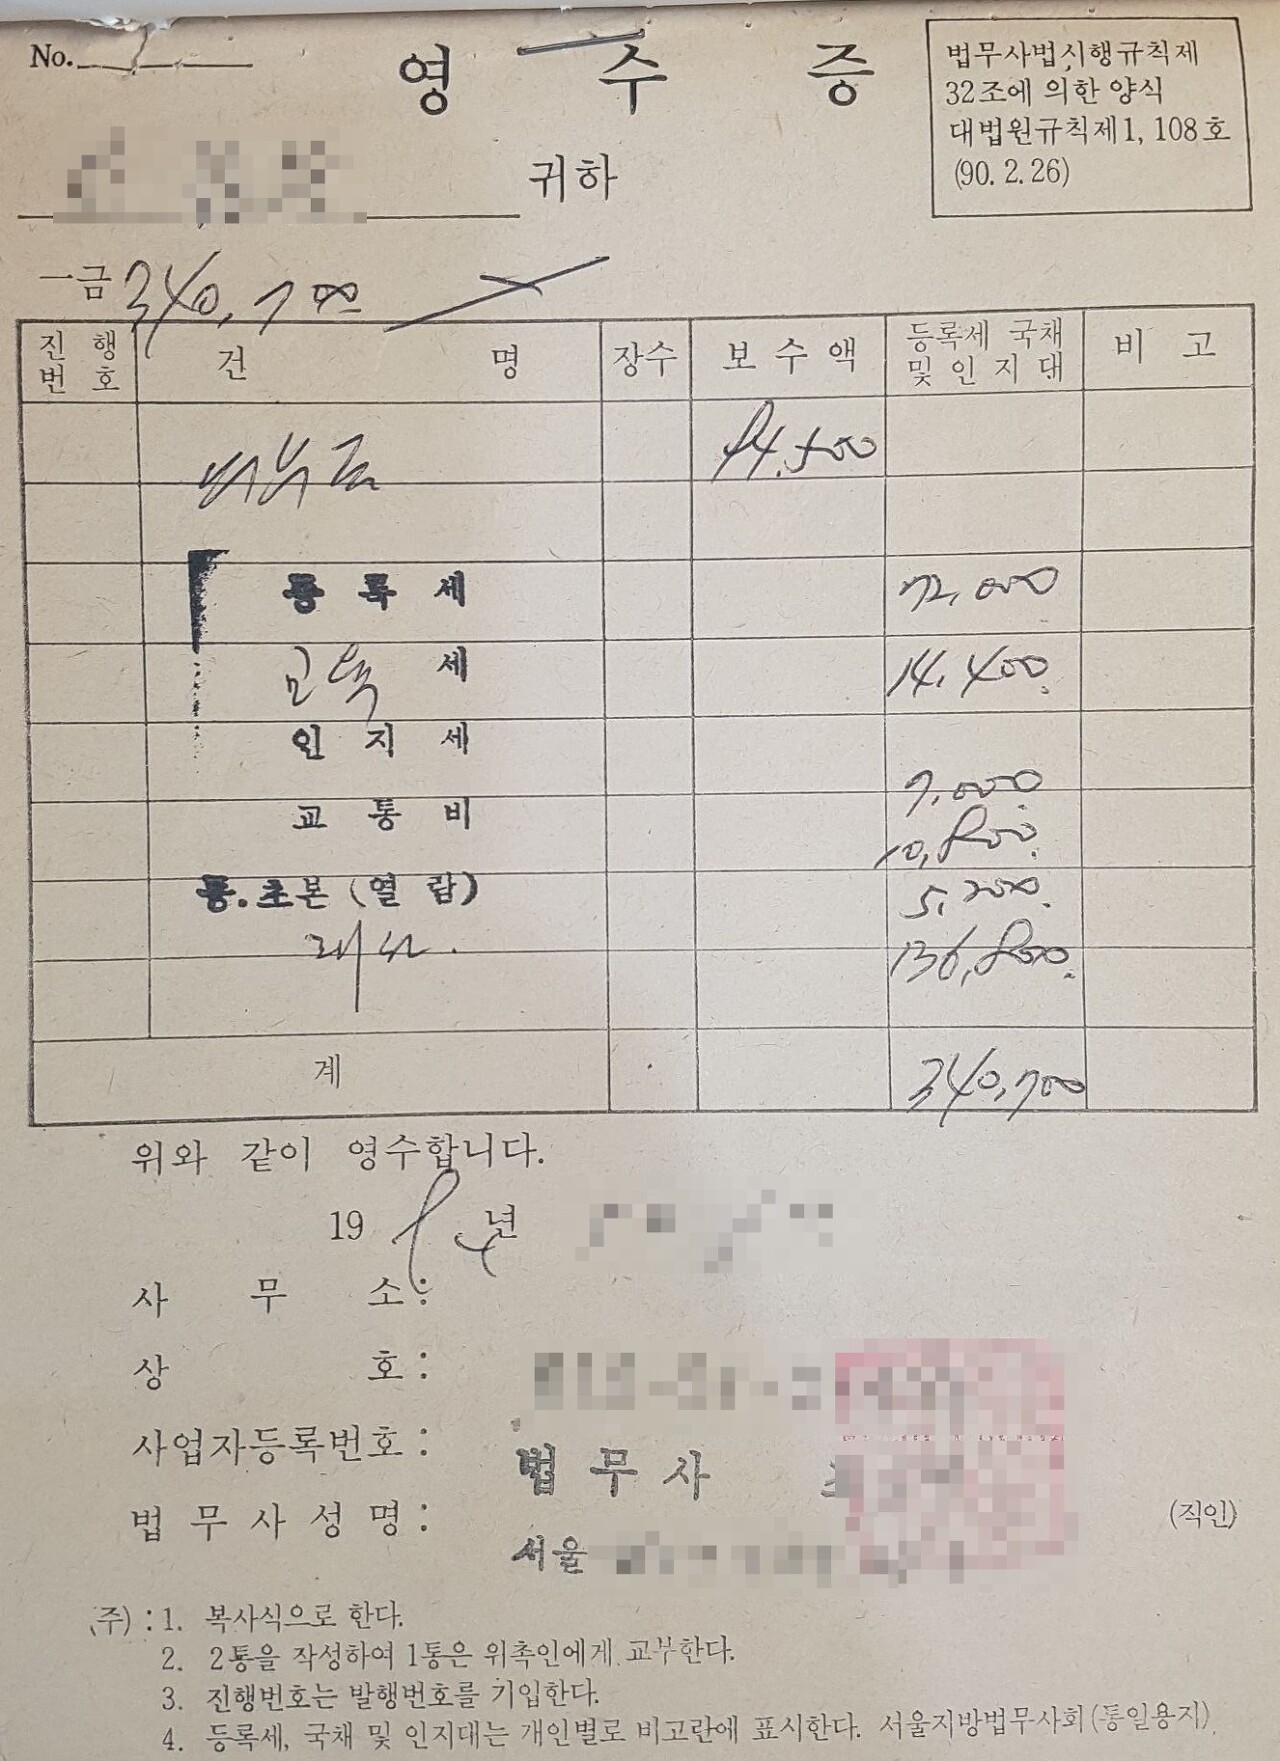 No.
영 수 증
법무사법시행규칙제
32조에 의한 양식
대법원규칙제1, 108호
(90. 2. 26)
귀하
一금 340,700
진 행 번 호 건 명 장수 보 수 액 등록세 국채 및 인 지 대 비 고
94,500
등 록 세 72,000
교육 세 14,400
인 지 세 7,000
교 통 비 10,800
등.초본 (열 람) 5,200
136,800
계 340,700
위와 같이 영수합니다.
19 94 년
사 무 소 :
상 호 :
사업자등록번호 :
법 무 사
법 무 사 성 명 : (직인)
서울
(주) : 1. 복사식으로 한다.
2. 2통을 작성하여 1통은 위촉인에게 교부한다.
3. 진행번호는 발행번호를 기입한다.
4. 등록세, 국채 및 인지대는 개인별로 비고란에 표시한다. 서울지방법무사회(통일용지)